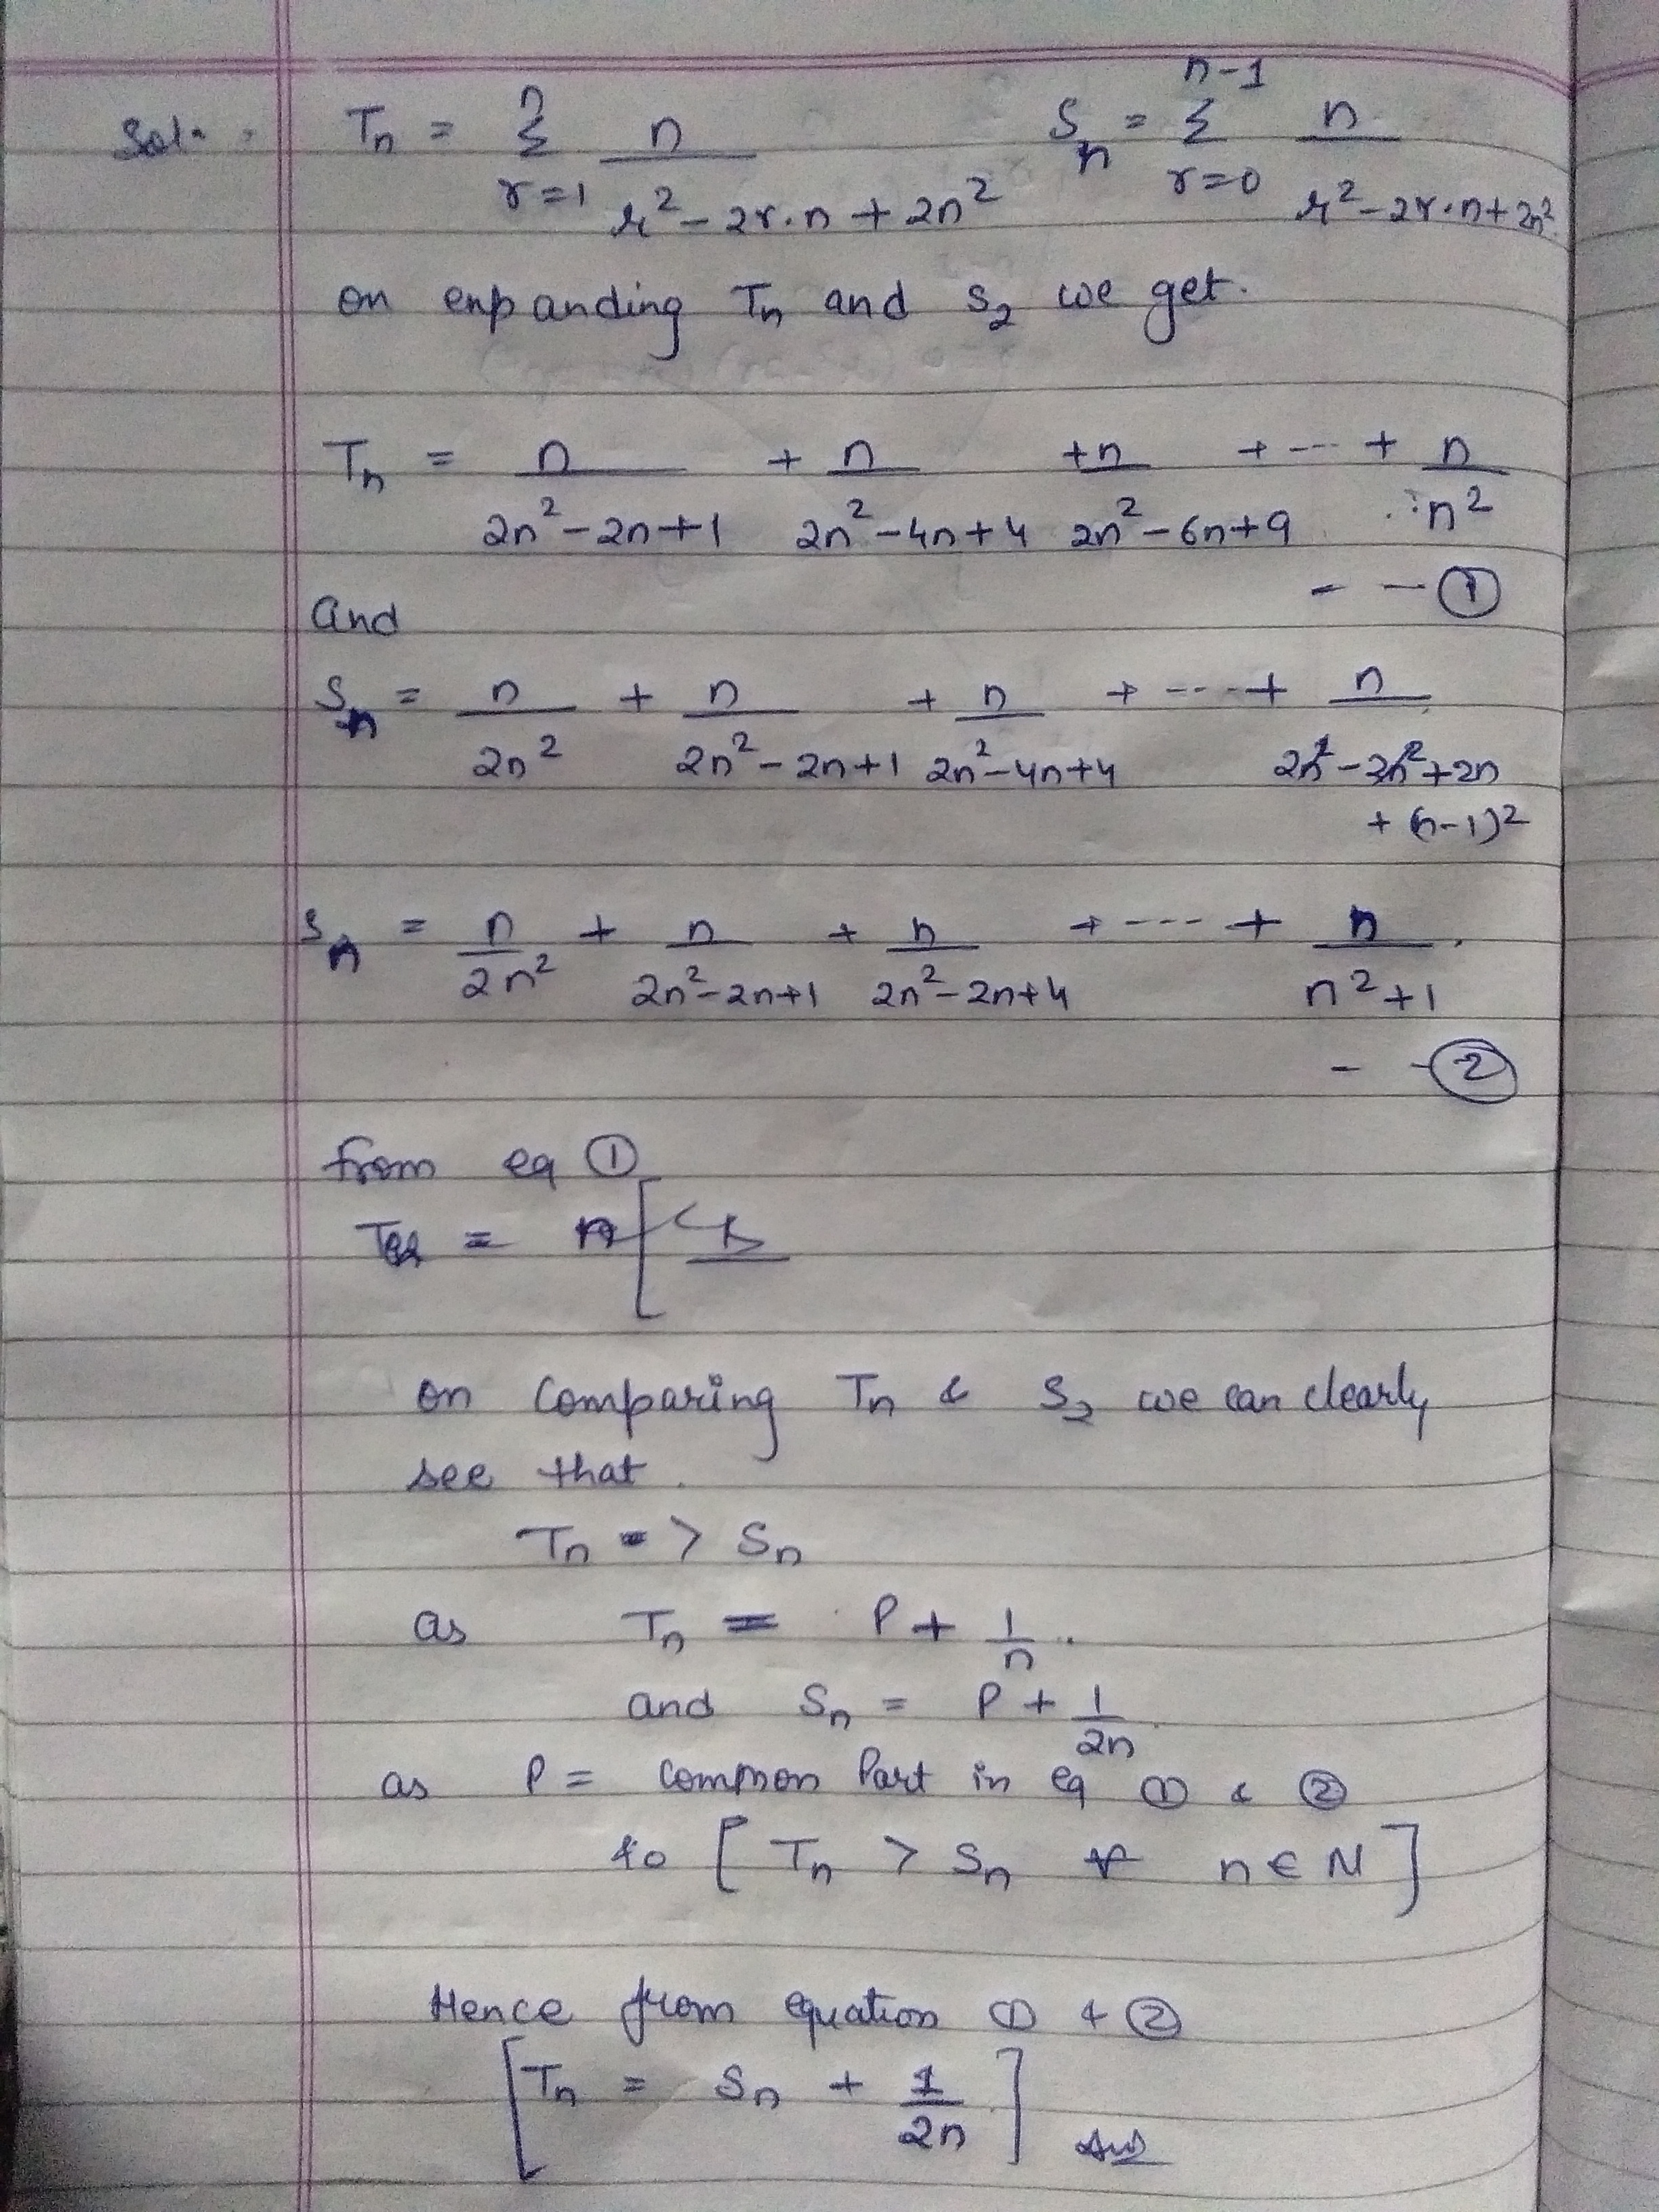 Sol:- Tₙ = Σ (r=1 to n) n / (r² - 2r.n + 2n²)   Sₙ = Σ (r=0 to n-1) n / (r² - 2r.n + 2n²)
on expanding Tₙ and S₂ we get.
Tₙ = n/(2n² - 2n + 1) + n/(2n² - 4n + 4) + n/(2n² - 6n + 9) + --- + n/n²
- - ①
and
Sₙ = n/(2n²) + n/(2n² - 2n + 1) + n/(2n² - 4n + 4) + ---- + n/(2n² - 2n² + 2n + (n-1)²)
Sₙ = n/(2n²) + n/(2n² - 2n + 1) + n/(2n² - 2n + 4) + --- + n/(n² + 1).
- - ②
from eq ①
= n [
on comparing Tₙ & S₂ we can clearly
see that.
Tₙ > Sₙ
as Tₙ = P + 1/n.
and Sₙ = P + 1/2n.
as P = common Part in eq ① & ②
so [ Tₙ > Sₙ ∀ n ∈ N ]
Hence from equation ① & ②
[ Tₙ = Sₙ + 1/2n . ] Ans